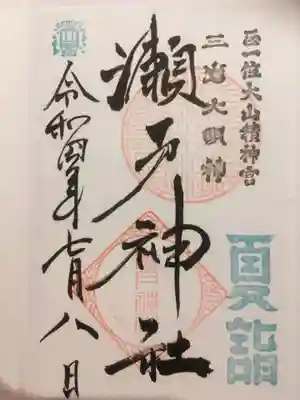 正一位大山積神宮
三島大明神
夏詣
瀬戸神社
令和四年七月八日